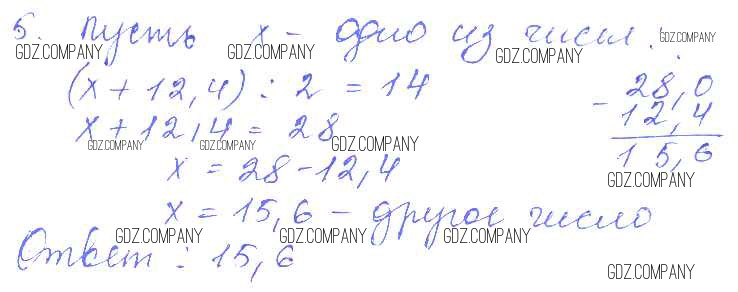 5. Пусть x - одно из чисел.
(x + 12,4) : 2 = 14
x + 12,4 = 28
x = 28 - 12,4
x = 15,6 - другое число
Ответ: 15,6
28,0
- 12,4
15,6
GDZ.COMPANY GDZ.COMPANY GDZ.COMPANY GDZ.COMPANY
GDZ.COMPANY GDZ.COMPANY GDZ.COMPANY
GDZ.COMPANY
GDZ.COMPANY GDZ.COMPANY GDZ.COMPANY
GDZ.COMPANY